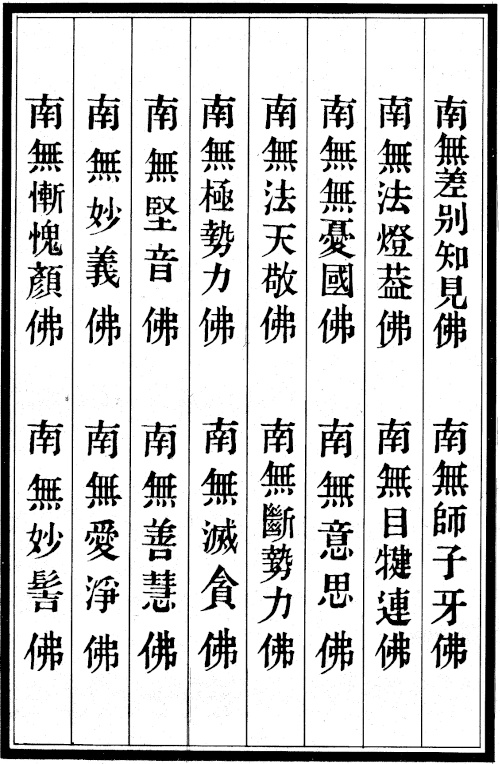 南無差別知見佛 南無師子牙佛
南無法燈葢佛 南無目犍連佛
南無無憂國佛 南無意思佛
南無法天敬佛 南無斷勢力佛
南無極勢力佛 南無滅貪佛
南無堅音佛 南無善慧佛
南無妙義佛 南無愛淨佛
南無慚愧顏佛 南無妙髻佛